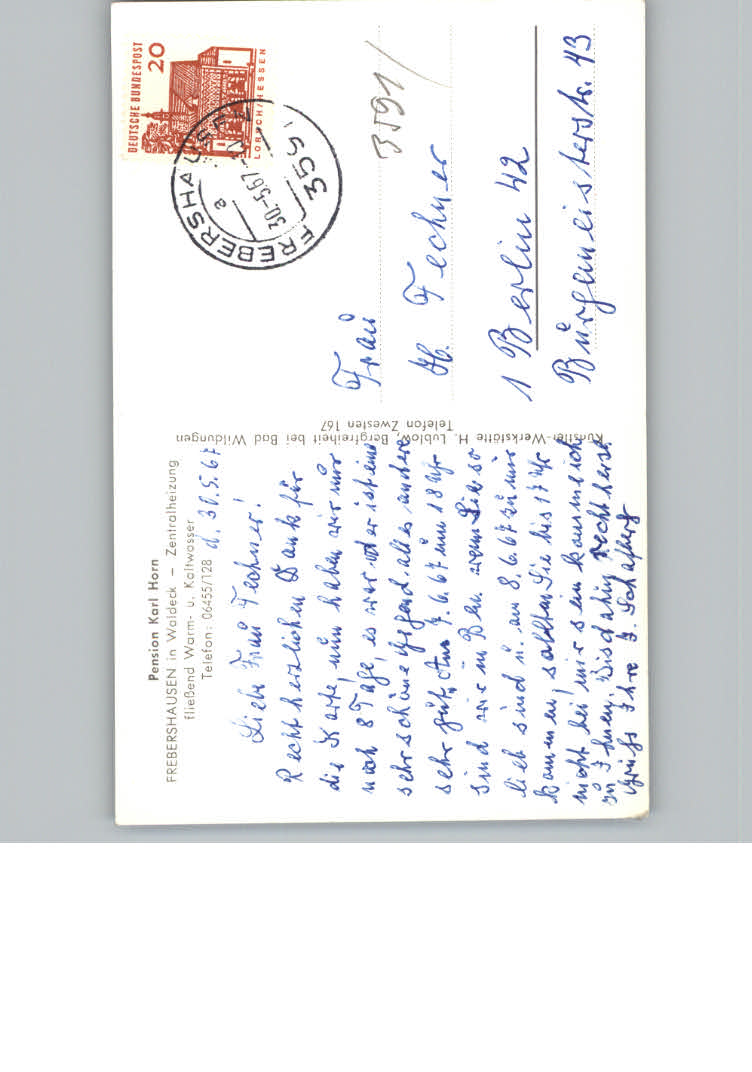 Pension Karl Horn
FREBERSHAUSEN in Waldeck – Zentralheizung
fließend Warm- u. Kaltwasser
Telefon: 06455/128
d. 30.5.67
Liebe Frau Techner!
Recht herzlichen Dank für
die Karte, nun haben wir nur
noch 8 Tage, es war oder ist eine
sehr schöne Gegend, alles andere
sehr gut. Am 7.6.67 um 18 Uhr
sind wir in Bln. wenn Sie so
lieb sind u. am 8.6.67 zu mir
kommen, sollten Sie bis 17 Uhr
nicht bei mir sein komme ich
zu Ihnen. Bis dahin recht herzl.
Grüße Ihre F.
Künstler-Werkstätte H. Lublow, Bergfreiheit bei Bad Wildungen
Telefon Zwesten 167
DEUTSCHE BUNDESPOST
20
LORSCH/HESSEN
FREBERSHAUSEN
a
30.-5.67
3591
3591/
Frau
H. Techner
1 Berlin 42
Bürgermeisterstr. 43